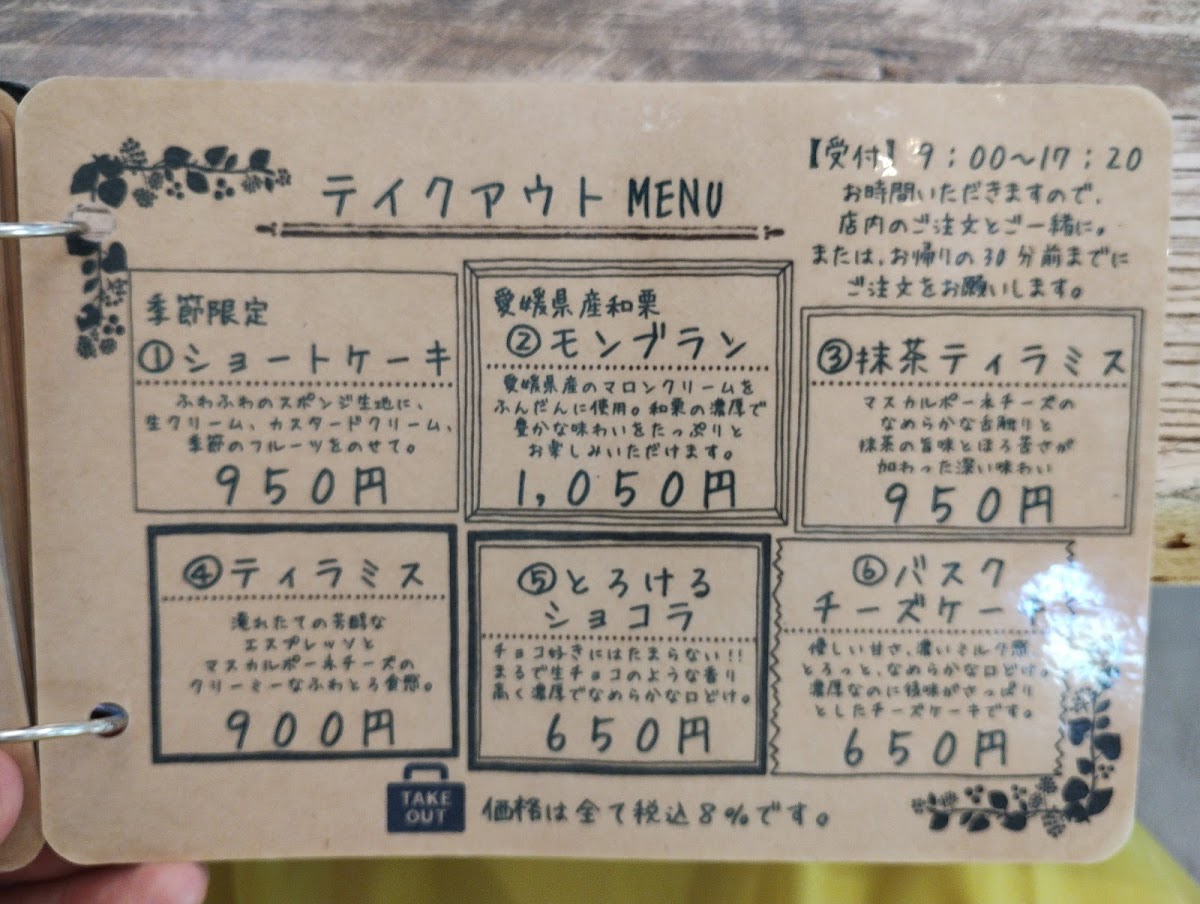 テイクアウト MENU
【受付】9:00〜17:20
お時間いただきますので、
店内のご注文とご一緒に。
または、お帰りの30分前までに
ご注文をお願いします。
季節限定
①ショートケーキ
ふわふわのスポンジ生地に、
生クリーム、カスタードクリーム、
季節のフルーツをのせて。
950円
愛媛県産和栗
②モンブラン
愛媛県産のマロンクリームを
ふんだんに使用。和栗の濃厚で
豊かな味わいをたっぷりと
お楽しみいただけます。
1,050円
③抹茶ティラミス
マスカルポーネチーズの
なめらかな舌触りと
抹茶の旨味とほろ苦さが
加わった深い味わい
950円
④ティラミス
淹れたての芳醇な
エスプレッソと
マスカルポーネチーズの
クリーミーなふわとろ食感。
900円
⑤とろける
ショコラ
チョコ好きにはたまらない!!
まるで生チョコのような香り
高く濃厚でなめらかな口どけ。
650円
⑥バスク
チーズケー
優しい甘さ、濃いミルク感、
とろっと、なめらかな口どけ。
濃厚なのに後味がさっぱり
としたチーズケーキです。
650円
TAKE
OUT
価格は全て税込8%です。